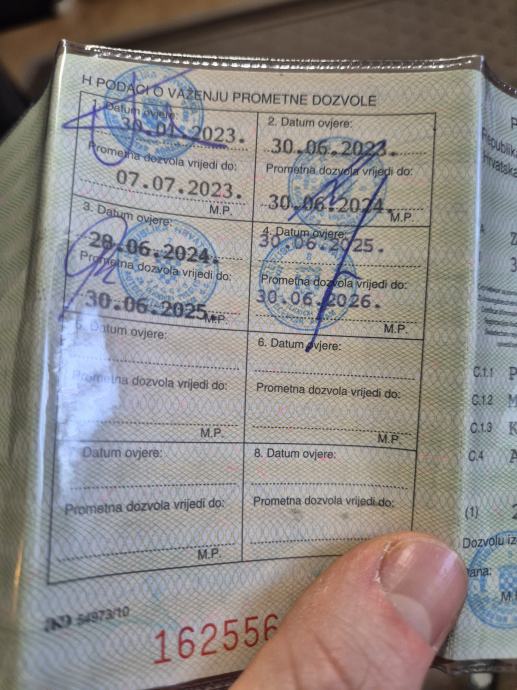 H PODACI O VAŽENJU PROMETNE DOZVOLE
1. Datum ovjere:
30.01.2023.
Prometna dozvola vrijedi do:
07.07.2023.
M.P.
2. Datum ovjere:
30.06.2023.
Prometna dozvola vrijedi do:
30.06.2024.
M.P.
3. Datum ovjere:
28.06.2024.
Prometna dozvola vrijedi do:
30.06.2025.
M.P.
4. Datum ovjere:
30.06.2025.
Prometna dozvola vrijedi do:
30.06.2026.
M.P.
5. Datum ovjere:
Prometna dozvola vrijedi do:
M.P.
6. Datum ovjere:
Prometna dozvola vrijedi do:
M.P.
Datum ovjere:
Prometna dozvola vrijedi do:
M.P.
8. Datum ovjere:
Prometna dozvola vrijedi do:
54973/10
162556
Republika
Hrvatska
C.1.1 P
C.1.2 M
C.1.3 K
C.4 A
(1) 2
Dozvolu